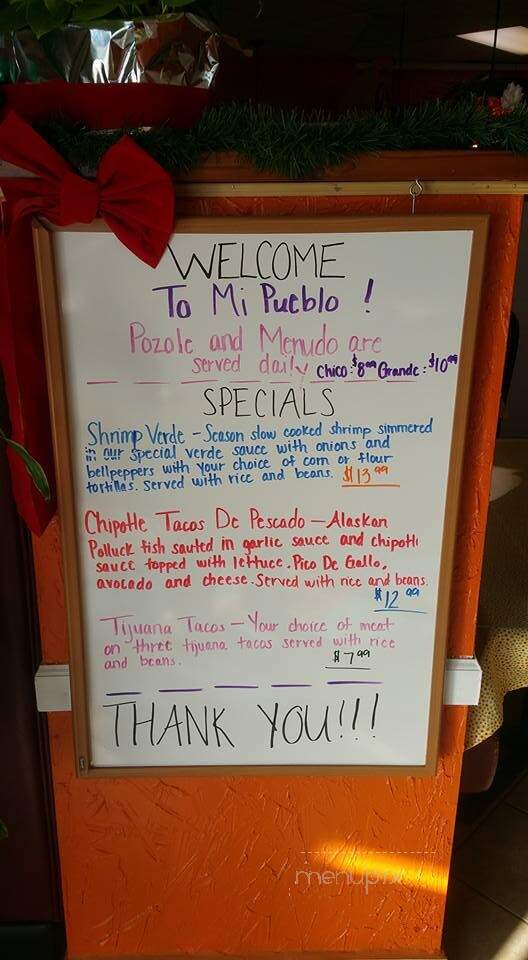 WELCOME
To Mi Pueblo !
Pozole and Menudo are
served daily Chico: $8.99 Grande: $10.99
SPECIALS
Shrimp Verde - Season slow cooked shrimp simmered
in our special verde sauce with onions and
bellpeppers with your choice of corn or flour
tortillas. Served with rice and beans. $13.99
Chipotle Tacos De Pescado - Alaskan
Polluck fish sauted in garlic sauce and chipotl
sauce topped with lettuce, Pico De Gallo,
avocado and cheese. Served with rice and beans.
$12.99
Tijuana Tacos - Your choice of meat
on three tijuana tacos served with rice
and beans. $7.99
THANK YOU!!!
menupix